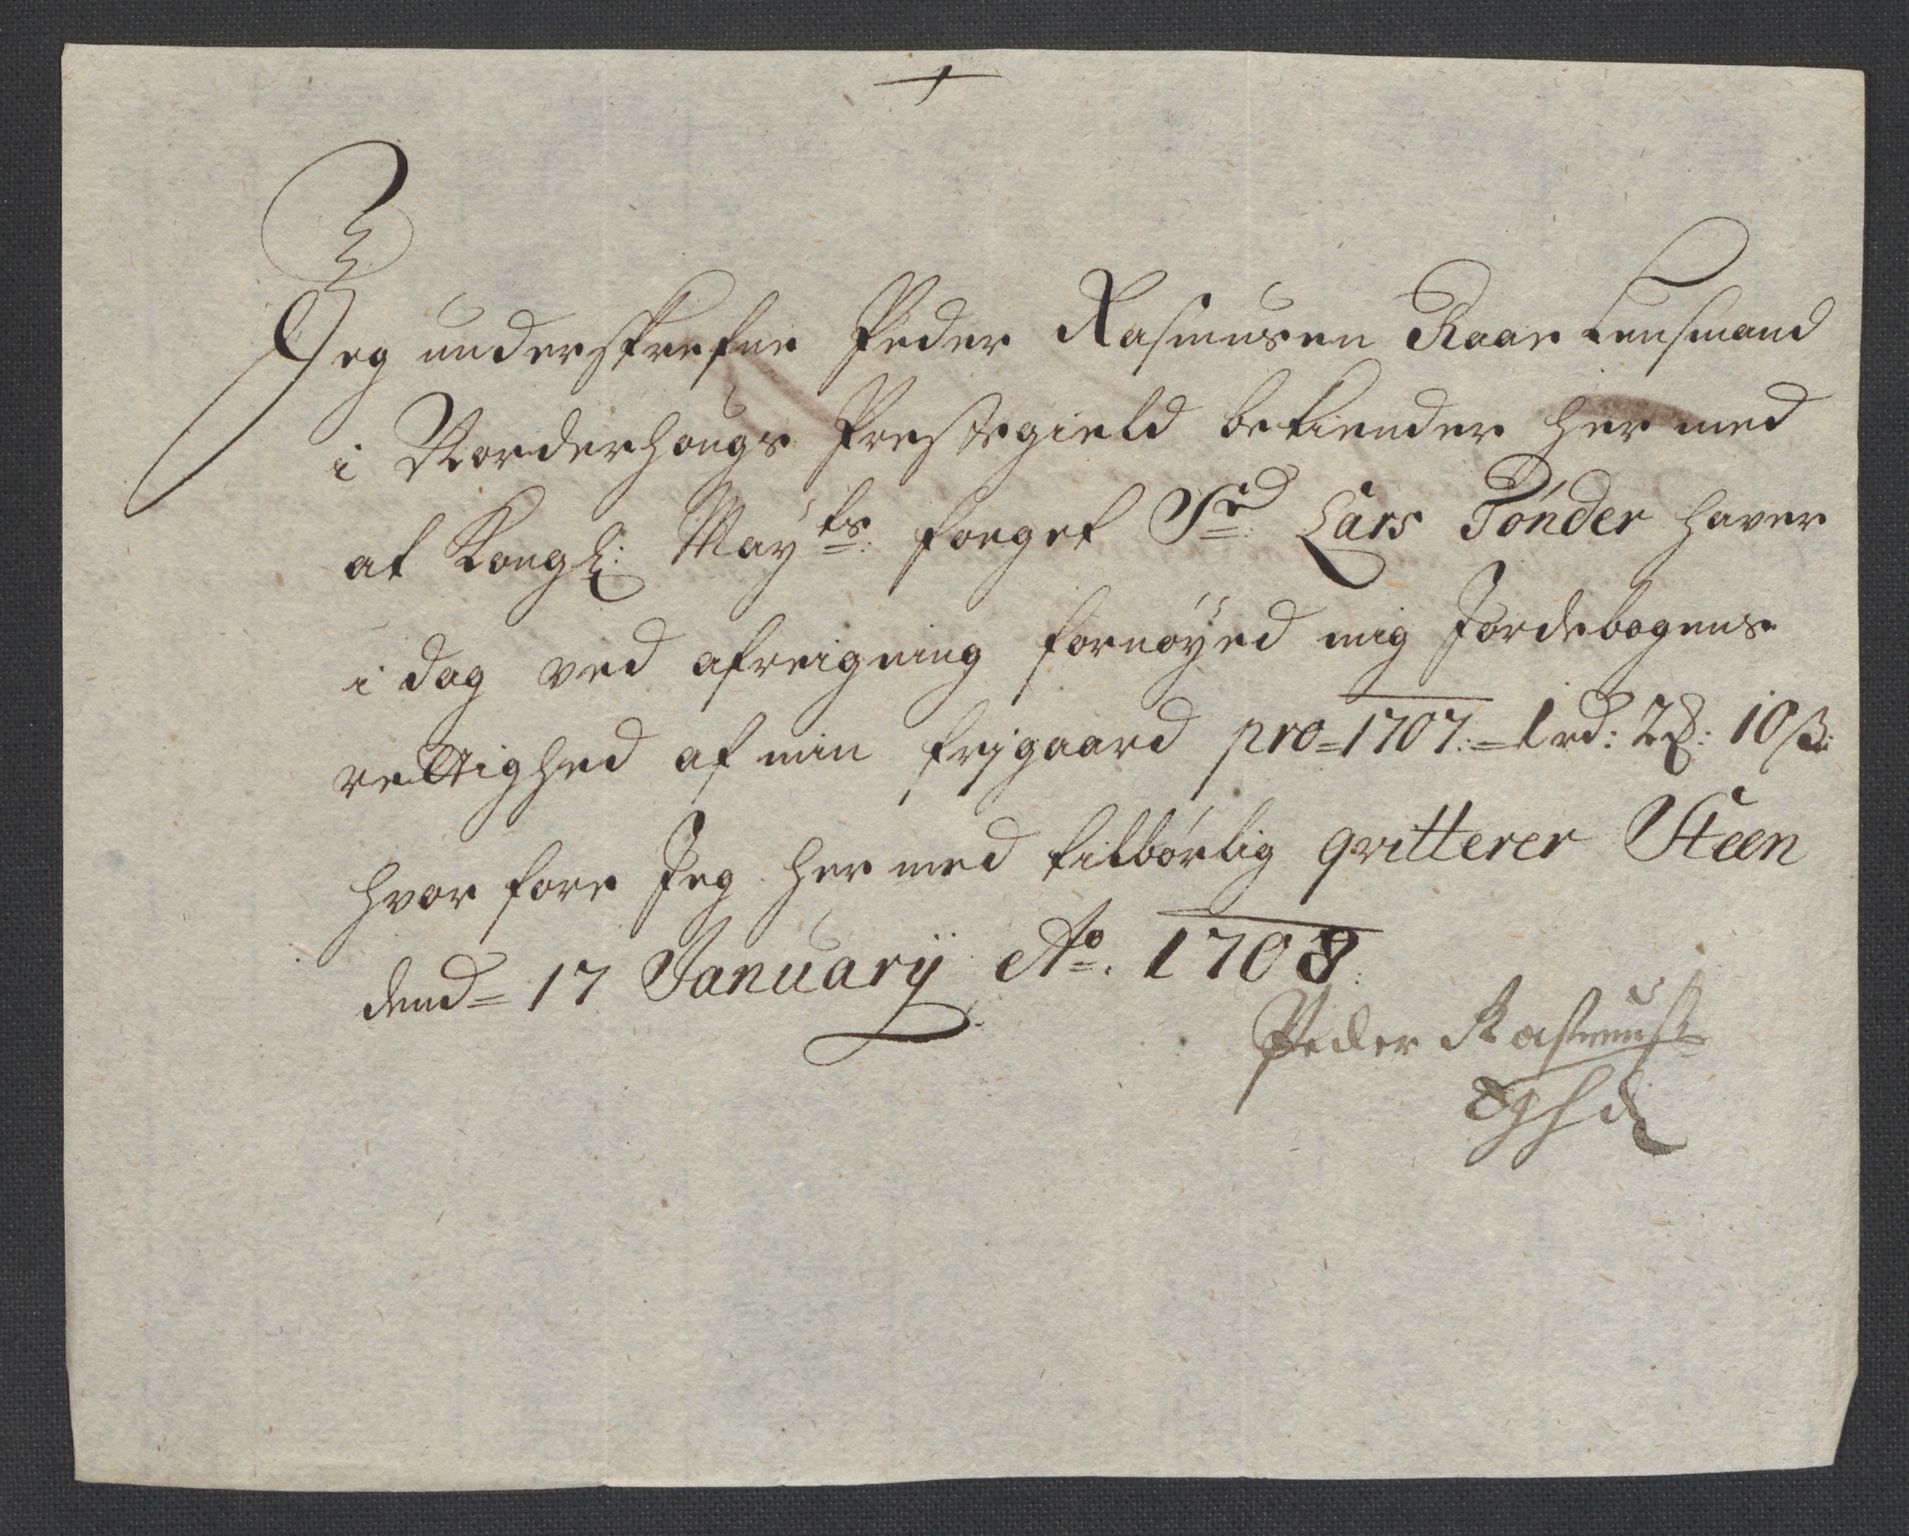 Jeg underskrefne Peder Rasmusen Raae Lensmand
i Norderhougs Prestegield bekiender her med
at Kongl: Mayts: foeget Sr Lars Tønder haver
i dag ved afreigning fornøyed mig Jordebogens
rettighed af min frjgaard pro 1707: 1 rd: 2 ℔: 10 ß:
hvor fore Jeg her med tilbørlig qvitterer Steen
dend 17 Januarij Ao. 1708
Peder Rasmus